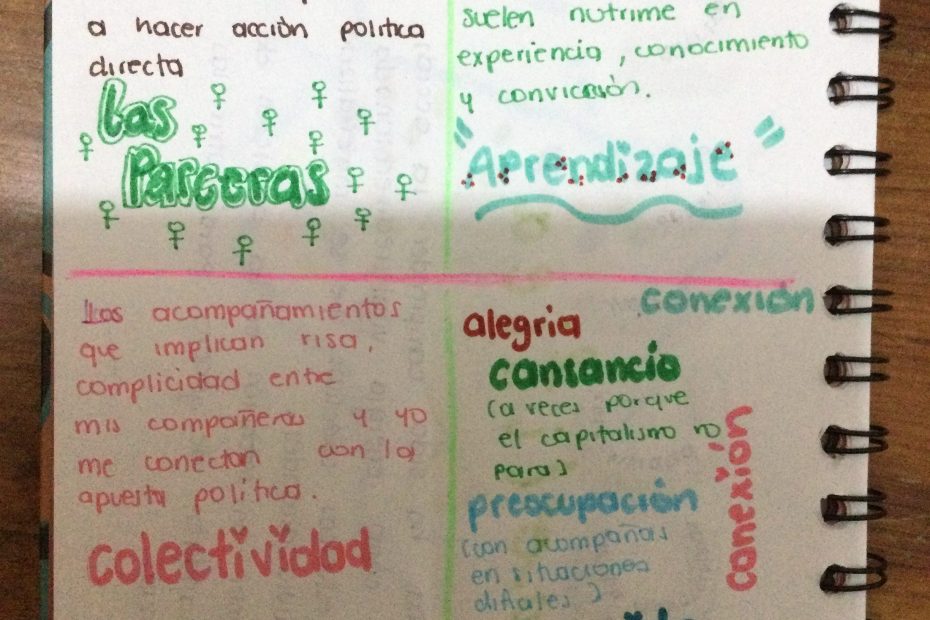 a hacer acción política
directa
Las
Parceras
suelen nutrirme en
experiencia, conocimiento
y convicción.
"Aprendizaje"
Los acompañamientos
que implican risa,
complicidad entre
mis compañeras y yo
me conectan con la
apuesta política.
Colectividad
conexión
alegria
cansancio
(a veces porque
el capitalismo no
para)
preocupación
(con acompañas
en situaciones
dificiles)
conexión